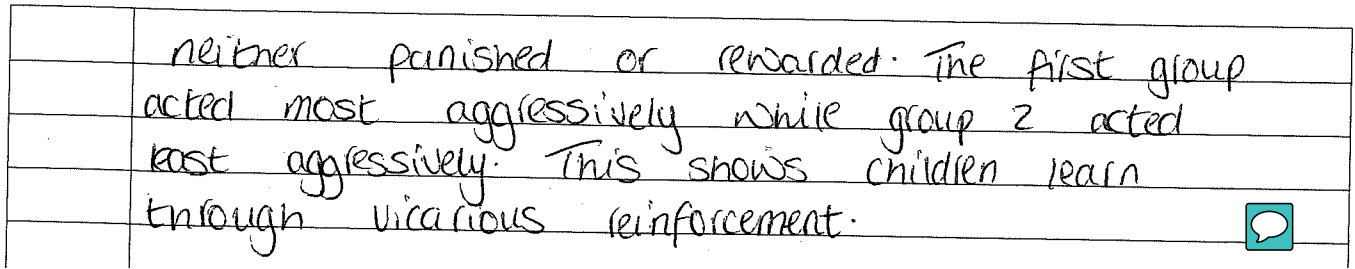 neither punished or rewarded. The first group
acted most aggressively while group 2 acted
least aggressively. This shows children learn
through vicarious reinforcement.